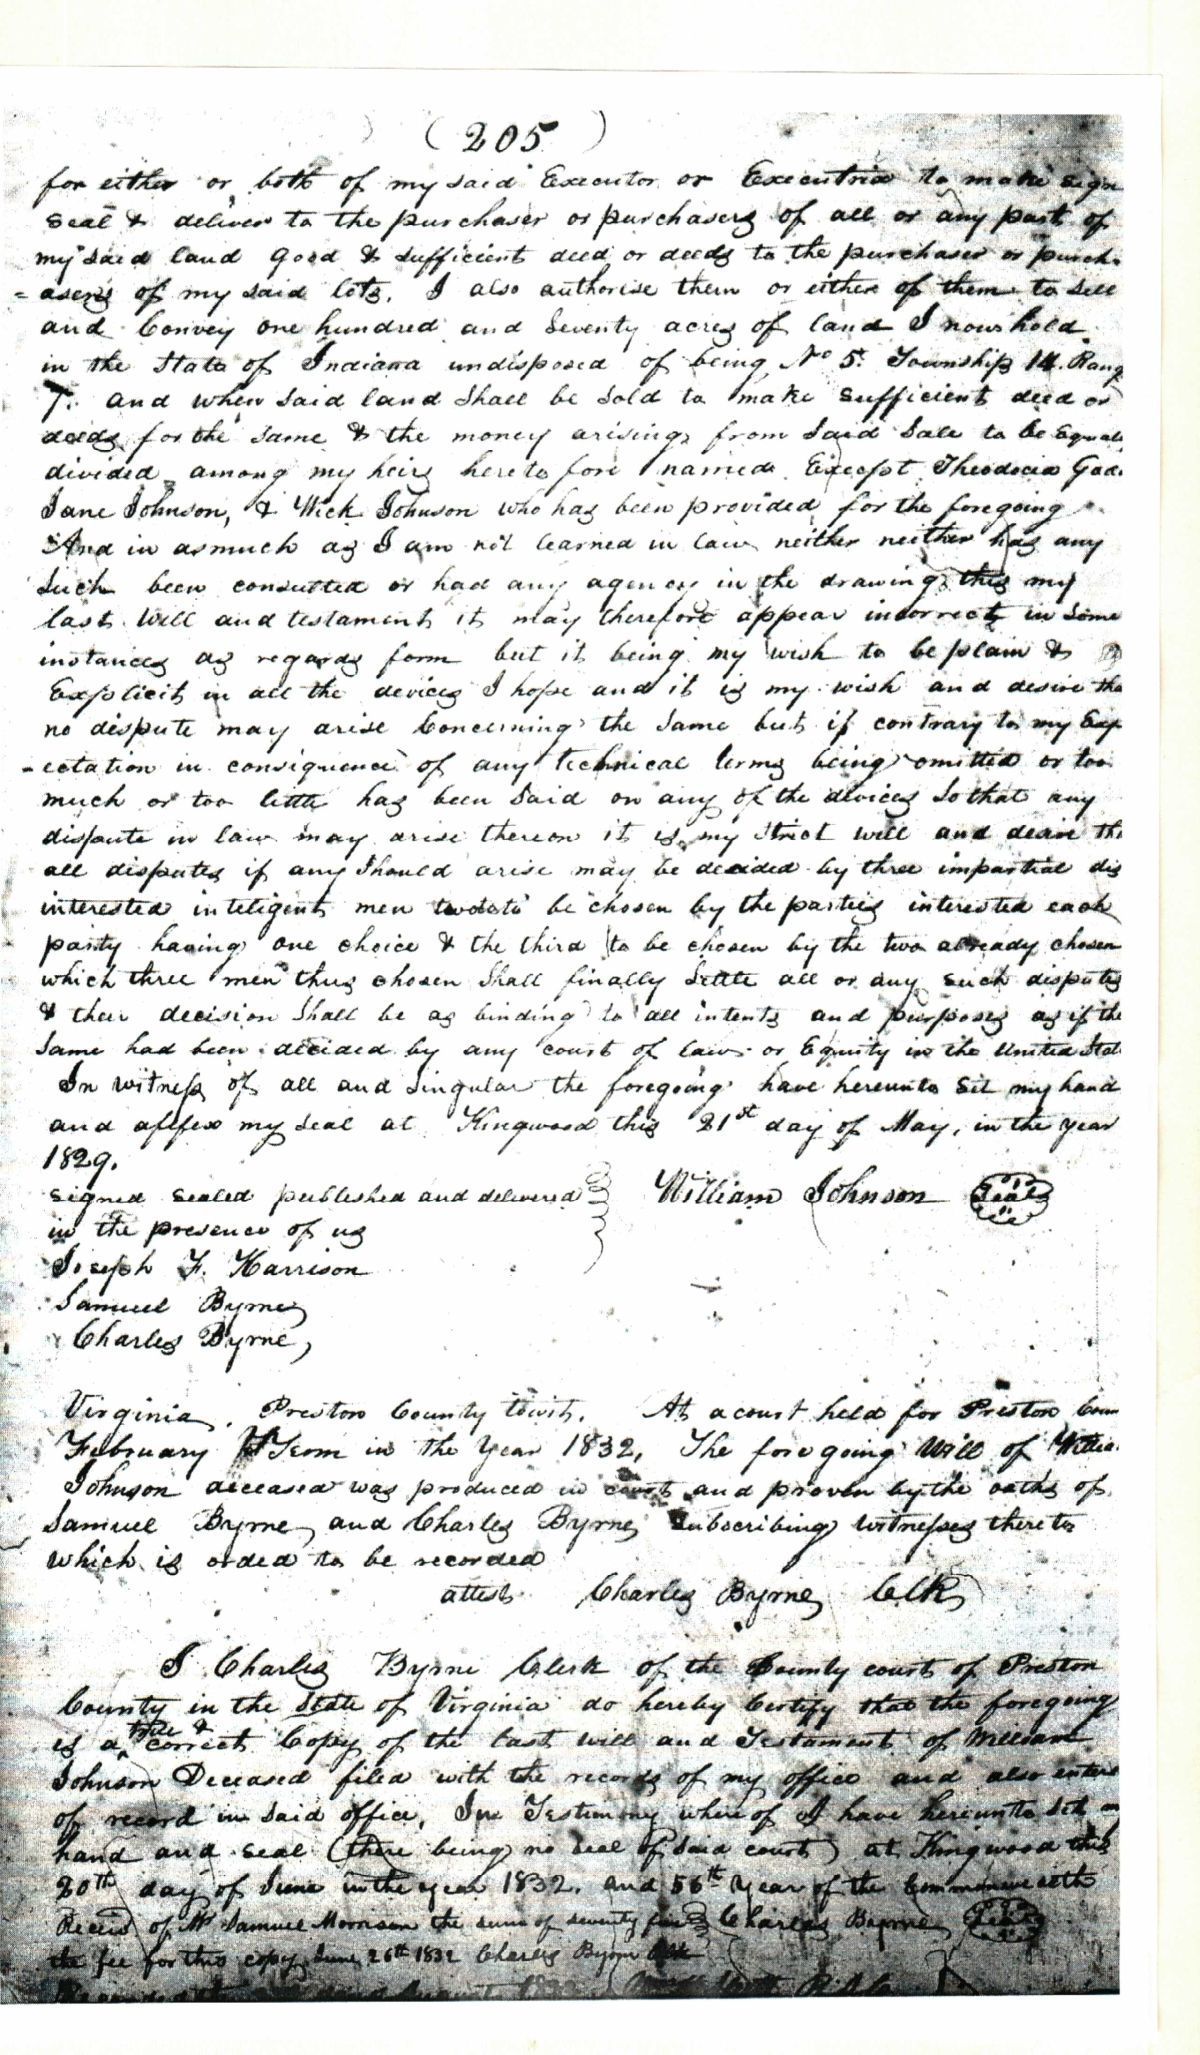 ( 205 )
for either or both of my said Executor or Executrix to make sign
seal & deliver to the purchaser or purchasers of all or any part of
my said land good & sufficient deed or deeds to the purchaser or purch-
=asers of my said lots. I also authorise them or either of them to sell
and Convey one hundred and seventy acres of land I now hold
in the State of Indiana undisposed of being No 5. Township 14. Rang
7. and when said land shall be sold to make sufficient deed or
deeds for the same & the money arising from said sale to be Equal
divided among my heirs hereto fore named Except Theodocia
Jane Johnson, & Wick Johnson who has been provided for the foregoing
And in as much as I am not learned in law neither neither has any
such been consulted or had any agency in the drawing this my
last will and testament it may therefore appear incorrect in some
instances as regards form but it being my wish to be plain &
Explicit in all the devices I hope and it is my wish and desire tha
no dispute may arise Concerning the same but if contrary to my Exp
-ectation in consiquence of any technical terms being omitted or too
much or too little has been said on any of the devices so that any
dispute in law may arise thereon it is my strict will and desire th
all disputes if any should arise may be decided by three impartial dis
interested inteligent men to be chosen by the parties interested each
party having one choice & the third to be chosen by the two already chosen
which three men thus chosen shall finally settle all or any such disputes
& their decision shall be as binding to all intents and purposes as if the
same had been decided by any court of law or Equity in the United Stat
In witness of all and singular the foregoing have hereunto set my hand
and affex my seal at Kingwood this 21st day of May, in the year
1829.
signed sealed published and delivered William Johnson Seal
in the presence of us
Joseph F. Harrison
Samuel Byrne
Charles Byrne,
Virginia, Preston County towit. At a court held for Preston Coun
February Term in the Year 1832, The foregoing Will of Willia
Johnson deceased was produced in court and proven by the oaths of
Samuel Byrne and Charles Byrne subscribing witnesses thereto
which is orded to be recorded
attest Charles Byrne Clk
I Charles Byrne Clerk of the County court of Preston
County in the State of Virginia do hereby Certify that the foregoing
is a true & correct Copy of the last will and Testament of William
Johnson Deceased filed with the records of my office and also entere
of record in said office, In Testimony where of I have hereunto set m
hand and seal (there being no seal of said court) at Kingwood this
20th day of June in the year 1832. and 56th Year of the Commonwealth
Receid of Mr Samuel Morrison the sum of seventy five Charles Byrne Seal
the fee for this copy June 26th 1832 Charles Byrne Clk